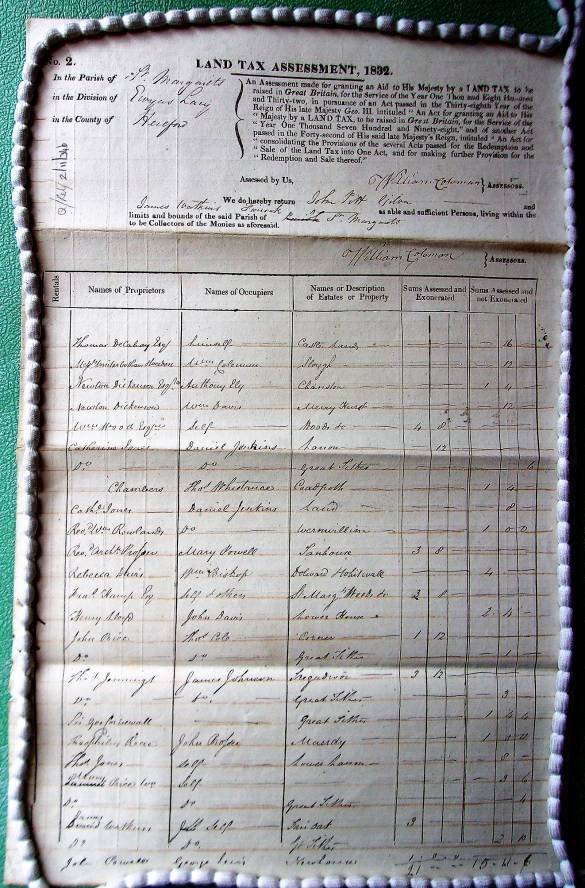 No. 2.
LAND TAX ASSESSMENT, 1832.
In the Parish of St. Margarets
in the Division of Ewyas Lacy
in the County of Hereford
An Assessment made for granting an Aid to His Majesty by a LAND TAX to be
raised in Great Britain, for the Service of the Year One Thou and Eight Hundred
and Thirty-two, in pursuance of an Act passed in the Thirty-eighth Year of the
Reign of His late Majesty Geo. III. intituled "An Act for granting an Aid to His
"Majesty by a LAND TAX, to be raised in Great Britain, for the Service of the
"Year One Thousand Seven Hundred and Ninety-eight," and of another Act
passed in the Forty-second of His said late Majesty's Reign, intituled "An Act for
"consolidating the Provisions of the several Acts passed for the Redemption and
"Sale of the Land Tax into One Act, and for making further Provision for the
"Redemption and Sale thereof."
Assessed by Us, William Coleman } ASSESSORS.
We do hereby return John and
James Watkins as able and sufficient Persons, living within the
limits and bounds of the said Parish of St. Margarets
to be Collectors of the Monies as aforesaid.
William Coleman } ASSESSORS.
Rentals Names of Proprietors Names of Occupiers Names or Description of Estates or Property Sums Assessed and Exonerated Sums Assessed and not Exonerated
Thomas Esq himself Lands 16
Wm Coleman Slough 12
Newton Dickenson Esq Anthony Ely Chanston 1 4
Newton Dickenson Wm Davis 12
Wm Wood Esq Self Woods 4 8
Catherine Jones Daniel Jenkins 12
Do Do Great Tithes 6
Chambers Thos Whistance 1 4
Cath. Jones Daniel Jenkins Land 8
Rev. Wm Rowlands Do 1 0 0
Rev. Prosser Mary Powell Tanhouse 3 8
Rebecca Wm Bishop 4
Kemp Esq Self & others St. Marg. Woods 8
Henry Lloyd John Davis Lower House 2 4
John Price Thos Cole Corner 1 12
Do Do Great Tithes 1
Thos Jennings James Johnson 3 12
Do Do Great Tithes 3
Sir Geo Cornewall Great Tithes 1 4 4
Theophilus John Prosser Maerdy 1
Thos Jones Self Lower 8
Price Self
Do Do Great Tithes 4
Watkins Self 3
Do Do Gt Tithes
John Powell George Lewis Newhouse
21